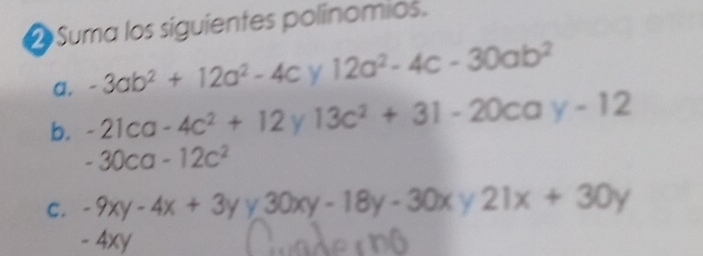 2 Suma los siguientes polinomios.
a. -3ab² + 12a² - 4c y 12a² - 4c - 30ab²
b. -21ca - 4c² + 12 y 13c² + 31 - 20ca y - 12
- 30ca - 12c²
c. -9xy - 4x + 3y y 30xy - 18y - 30x y 21x + 30y
- 4xy
Cuaderno